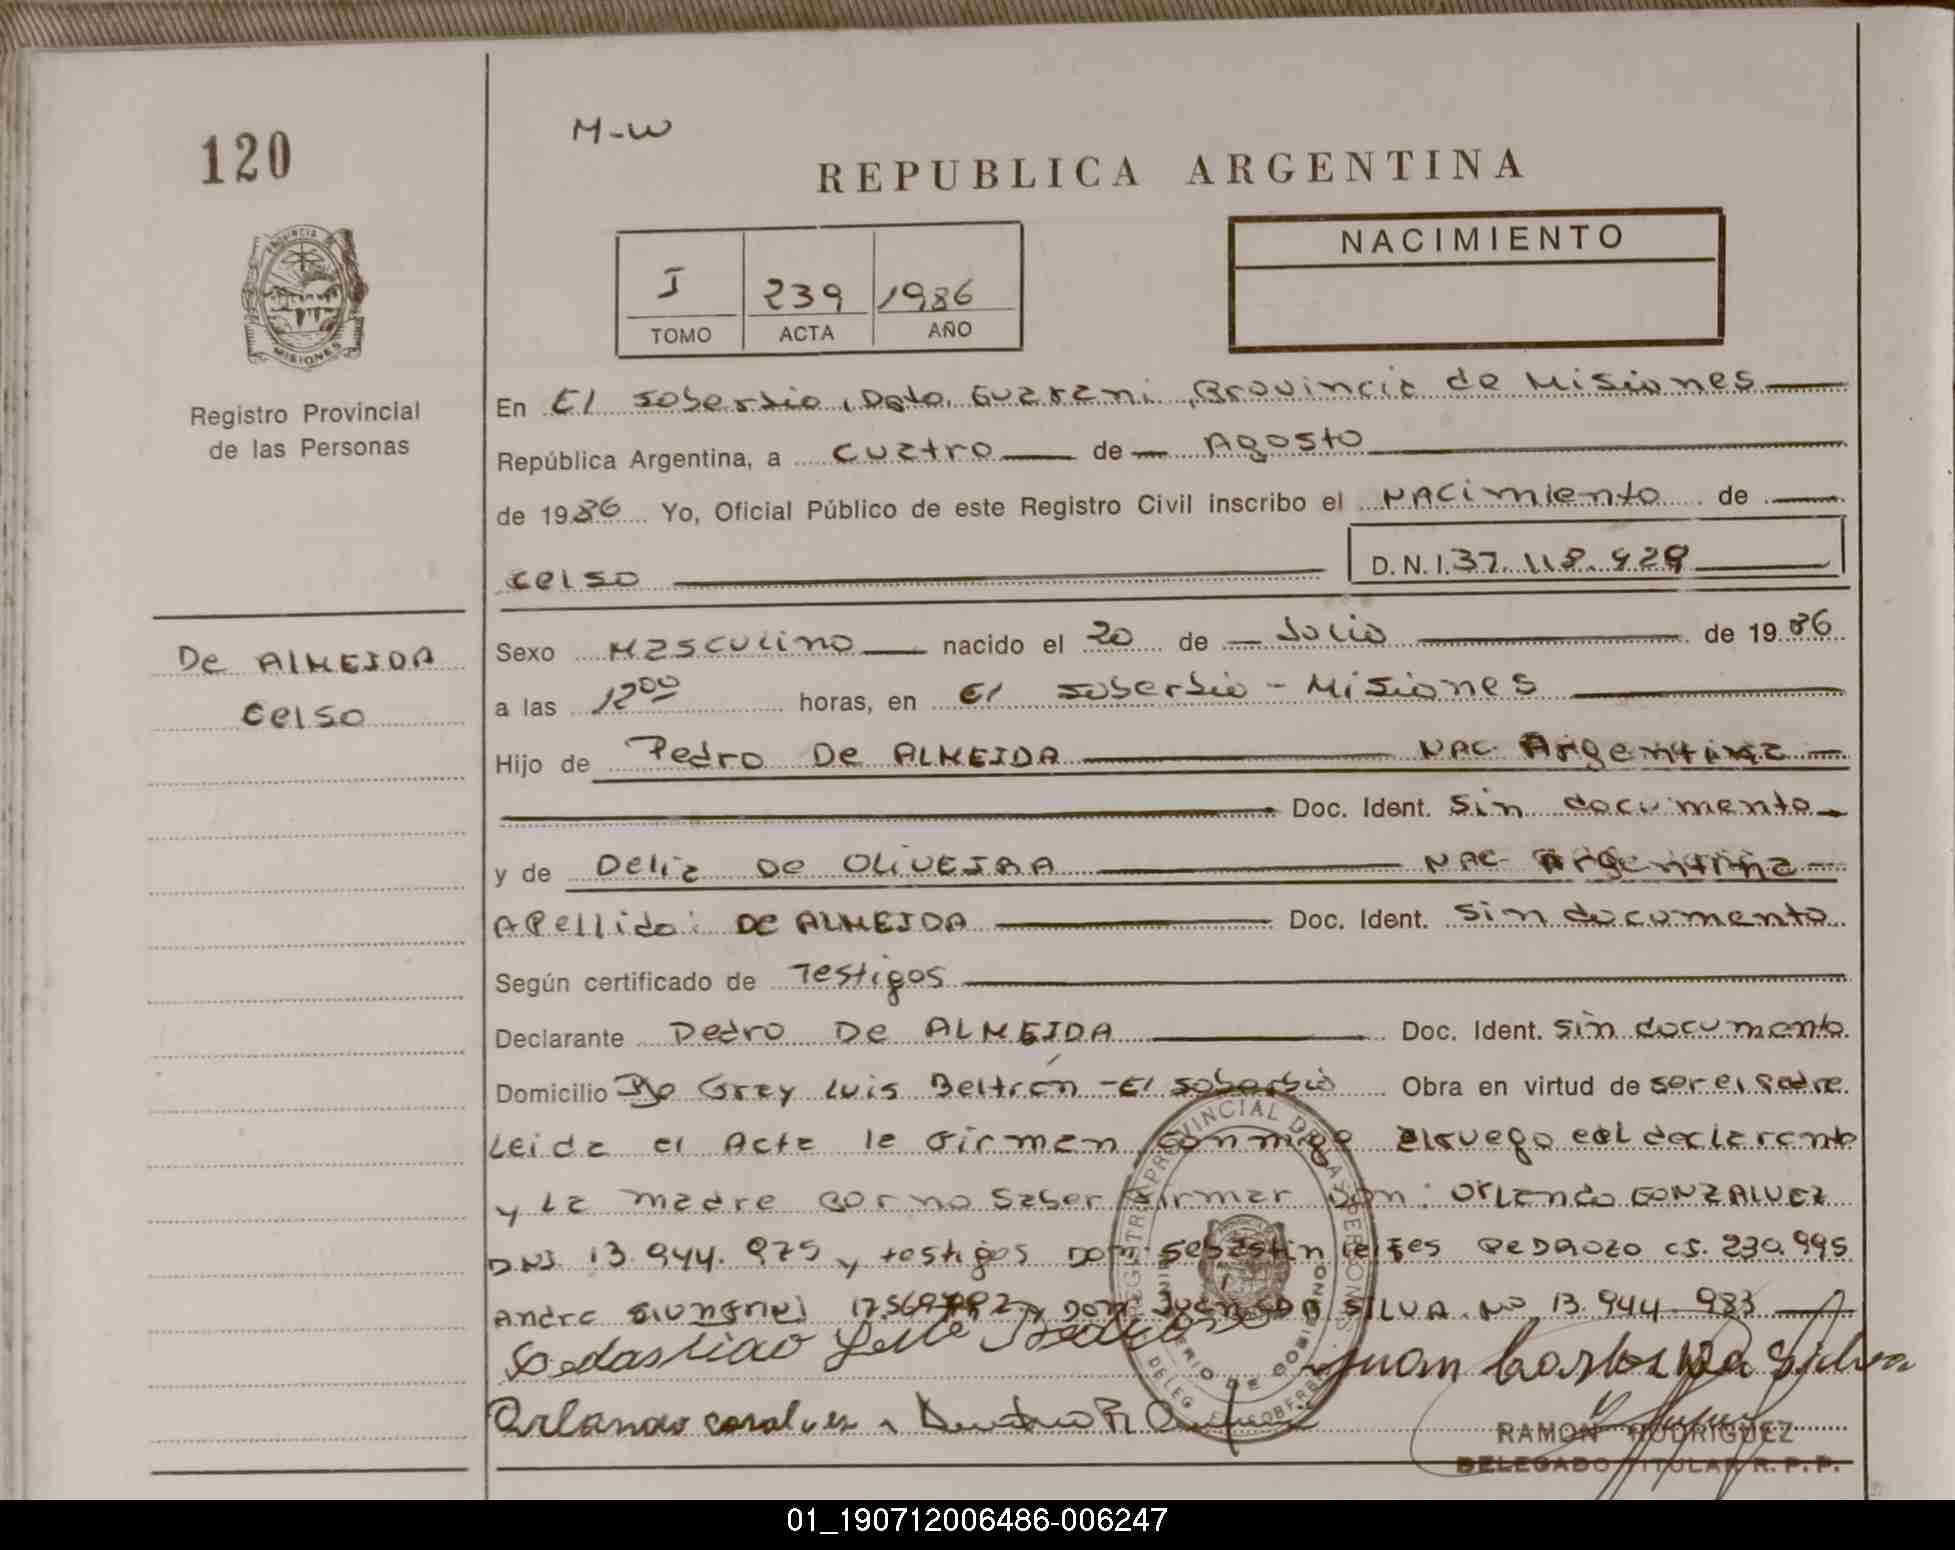 120
M-W
REPUBLICA ARGENTINA
PROVINCIA DE
MISIONES
Registro Provincial
de las Personas
I 239 1986
TOMO ACTA AÑO
NACIMIENTO
En El soberbio, Dpto. Guarani, Provincia de Misiones
República Argentina, a cuatro de Agosto
de 1986 Yo, Oficial Público de este Registro Civil inscribo el NACimiento de
celso D.N.I. 37.118.429
De ALMEIDA
Celso
Sexo Masculino nacido el 20 de Julio de 1986
a las 12 00 horas, en El soberbio - Misiones
Hijo de Pedro De ALMEIDA NAC. Argentina
Doc. Ident. Sin documento
y de Delia De OLIVEIRA NAC- Argentina
APellido: DE ALMEIDA Doc. Ident. Sin documento
Según certificado de Testigos
Declarante Pedro De ALMEIDA Doc. Ident. Sin documento
Domicilio Bo Gray Luis Beltrán - El soberbio Obra en virtud de ser el padre
Leida el Acta la firman conmigo a ruego del declarante
y La madre por no saber firmar Don: Orlando GONZALVEZ
DNI 13.944.975 y testigos Don Sebastin PEDROZO CI. 230.995
Andre y Don Juan DA SILVA No 13.944.983
Sebastiao
Juan Carlos Da Silva
Orlando
REGISTRO PROVINCIAL DE LAS PERSONAS
MINISTERIO DE GOBIERNO
RAMON RODRIGUEZ
DELEGADO TITULAR R. P. P.
01_190712006486-006247